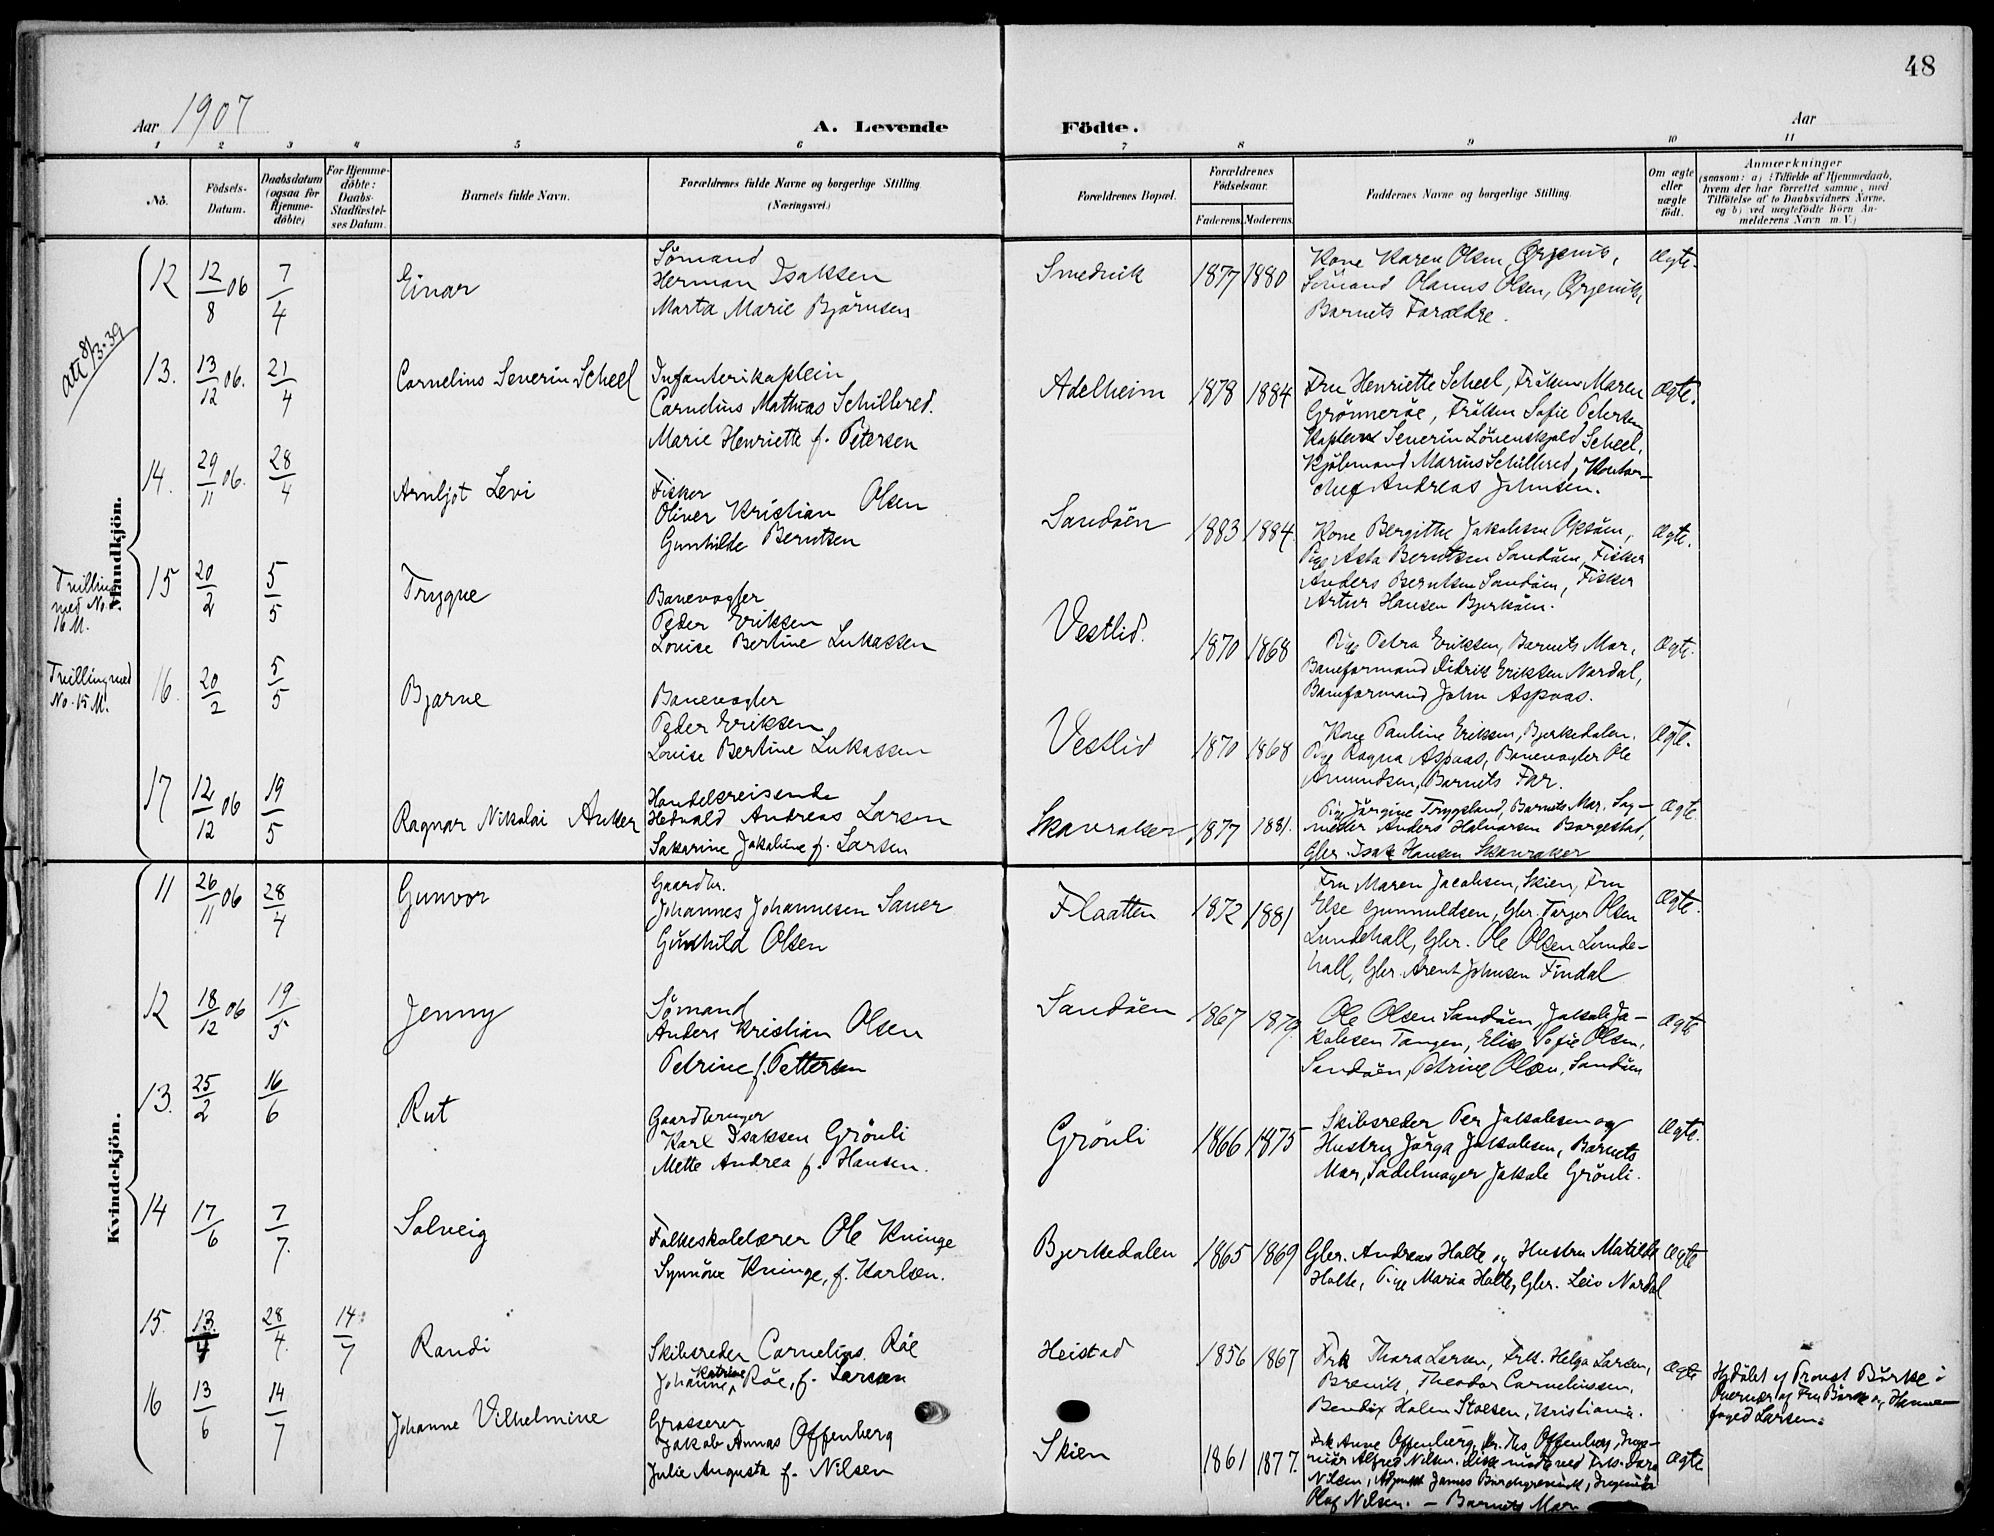 48
Aar 1907
A. Levende
Födte.
Aar
1 2 3 4 5 6 7 8 9 10 11
No.
Födsels-
Datum.
Daabsdatum
(ogsaa for
Hjemme-
döbte)
For Hjemme-
döbte:
Daabs-
Stadfæstel-
ses Datum.
Barnets fulde Navn.
Forældrenes fulde Navne og borgerlige Stilling.
(Næringsvei.)
Forældrenes Bopæl.
Forældrenes
Fødselsaar.
Faderens. Moderens.
Faddernes Navne og borgerlige Stilling.
Om ægte
eller
uægte
født.
Anmærkninger
(saasom: a) i Tilfælde af Hjemmedaab,
hvem der har forrettet samme, med
Tilföielse af to Daabsvidners Navne,
og b) ved uægtefödte Börn An-
melderens Navn m. V.)
Mandkjön.
12 12/8 06 7/4 Einar
Sömand
Herman Isaksen
Marta Marie Björnsen
Smedvik 1877 1880
Kone Karen Olsen, Ørjevik,
Sömand Olanus Olsen, Ørjevik,
Barnets Forældre.
Ægte.
att 8/3.39
13. 13/12 06. 21/4 Cornelius Severin Scheel
Infanterikaptein
Cornelius Mathias Schilbred.
Marie Henriette f. Petersen
Adelheim 1878 1884
Fru Henriette Scheel, Fröken Maren
Grönneröe, Fröken Sofie Petersen
Kaptein Severin Lövenskjold Scheel,
Kjöbmand Marius Schilbred, Kontor-
chef Andreas Johnsen.
Ægte.
14. 29/11 06. 28/4 Arnljot Levi
Fisker
Oliver Kristian Olsen
Gunhilde Berntsen
Sandöen 1883 1884.
Kone Bergitte Jakobsen Oksöen,
Pige Asta Berntsen Sandöen, Fisker
Anders Berntsen Sandöen, Fisker
Artur Hansen Bjerköen.
Ægte.
Tvilling
med No.
16 M.
15 20/2 5/5 Trygve
Banevogter
Peder Eriksen
Louise Bertine Lukassen
Vestlid. 1870 1868
Pige Petra Eriksen, Barnets Mor,
Baneformand Didrik Eriksen Nordal,
Baneformand John Aspaas.
Ægte.
Tvilling med
No. 15 M.
16. 20/2 5/5 Bjarne
Banevogter
Peder Eriksen
Louise Bertine Lukassen
Vestlid 1870 1868
Kone Pauline Eriksen, Bjerkedalen.
Pige Ragna Aspaas, Banevogter Ole
Amundsen, Barnets Far.
Ægte.
17 12/12 06 19/5 Ragnar Nikolai Anker
Handelsreisende
Hedvald Andreas Larsen
Sakarine Jakobine f. Larsen
Skavraker 1877 1881.
Pige Jörgine Trygsland, Barnets Mor, Sag-
mester Anders Halvorsen Borgestad,
Gbr. Isak Hansen Skavraker
Ægte
Kvindekjön.
11 26/11 06 28/4 Gunvor
Gaardbr.
Johannes Johannesen Sauer
Gunhild Olsen
Flaatten 1872 1881
Fru Maren Jacobsen, Skien, Fru
Else Gunnuldsen, Gbr. Torger Olsen
Lundehall, Gbr. Ole Olsen Lunde-
hall, Gbr. Arent Johnsen Findal
Ægte.
12 18/12 06 19/5 Jenny
Sömand
Anders Kristian Olsen
Petrine f. Pettersen
Sandöen 1867 1879.
Ole Olsen Sandöen, Jakob Ja-
kobsen Tangen, Elise Sofie Olsen,
Sandöen, Petrine Olsen, Sandöen
Ægte
13. 25/2 16/6 Rut
Gaardbruger
Karl Isaksen Grönli
Mette Andrea f. Hansen.
Grönli 1866 1875
Skibsreder Per Jakobsen og
Hustru Jörga Jakobsen, Barnets
Mor, Sadelmager Jakob Grönli.
Ægte.
14 17/6 7/7. Solveig
Folkeskolelærer Ole Kninge
Synnöve Kninge, f. Karlsen.
Bjerkedalen 1865 1869
Gbr. Andreas Holte og Hustru Matilde
Holte, Pige Maria Holte, Gbr. Leiv Nordal
Ægte
15. 13/4 28/4. 14/7 Randi
Skibsreder Cornelius Röe
Johanne Katrine Röe, f. Larsen
Heistad 1856 1867
Frk Thora Larsen, Frk. Helga Larsen,
Brevik, Theodor Corneliussen,
Bendix Holm Stolsen, Kristiania.
Ægte
Hjdöbt af Provst Börke i
Nærvær af Fru Börke og Havne-
foged Larsen.
16 13/6 14/7 Johanne Vilhelmine
Grosserer
Jakob Annas Offenberg
Julie Augusta f. Nilsen
Skien 1861 1877.
Frk Anne Offenberg, Ths. Offenberg, Inge-
niör Alfred Nilsen. ved Frk. Dora
Nilsen, Adjunkt James Ingeniör
Olaf Nilsen. — Barnets Mor
Ægte.